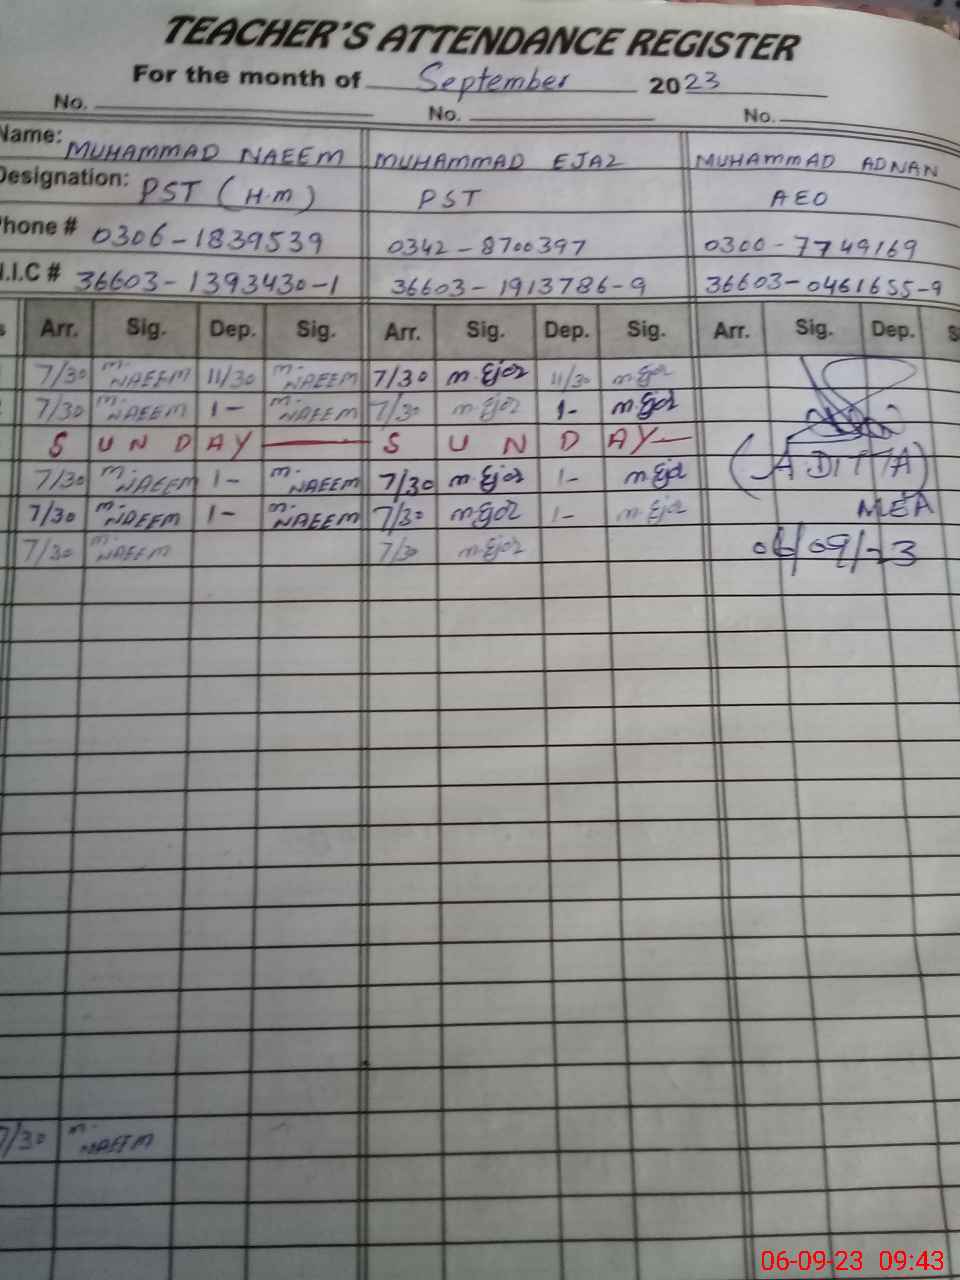 TEACHER'S ATTENDANCE REGISTER
For the month of September 2023
No. No. No.
Name: MUHAMMAD NAEEM MUHAMMAD EJAZ MUHAMMAD ADNAN
Designation: PST (H.M) PST AEO
Phone # 0306-1839539 0342-8700397 0300-7749169
N.I.C # 36603-1393430-1 36603-1913786-9 36603-0461655-9
Arr. Sig. Dep. Sig. Arr. Sig. Dep. Sig. Arr. Sig. Dep. S
7/30 M. NAEEM 11/30 M. NAEEM 7/30 M.Ejaz 11/30 M.Ejaz
7/30 M. NAEEM 1- M. NAEEM 7/30 M.Ejaz 1- M.Ejaz
S U N D A Y S U N D A Y
7/30 M. NAEEM 1- M. NAEEM 7/30 M.Ejaz 1- M.Ejaz
(ADITTA)
7/30 M. NAEEM 1- M. NAEEM 7/30 M.Ejaz 1- M.Ejaz MEA
7/30 M. NAEEM 7/30 M.Ejaz 06/09/23
7/30 M. NAEEM
06-09-23 09:43